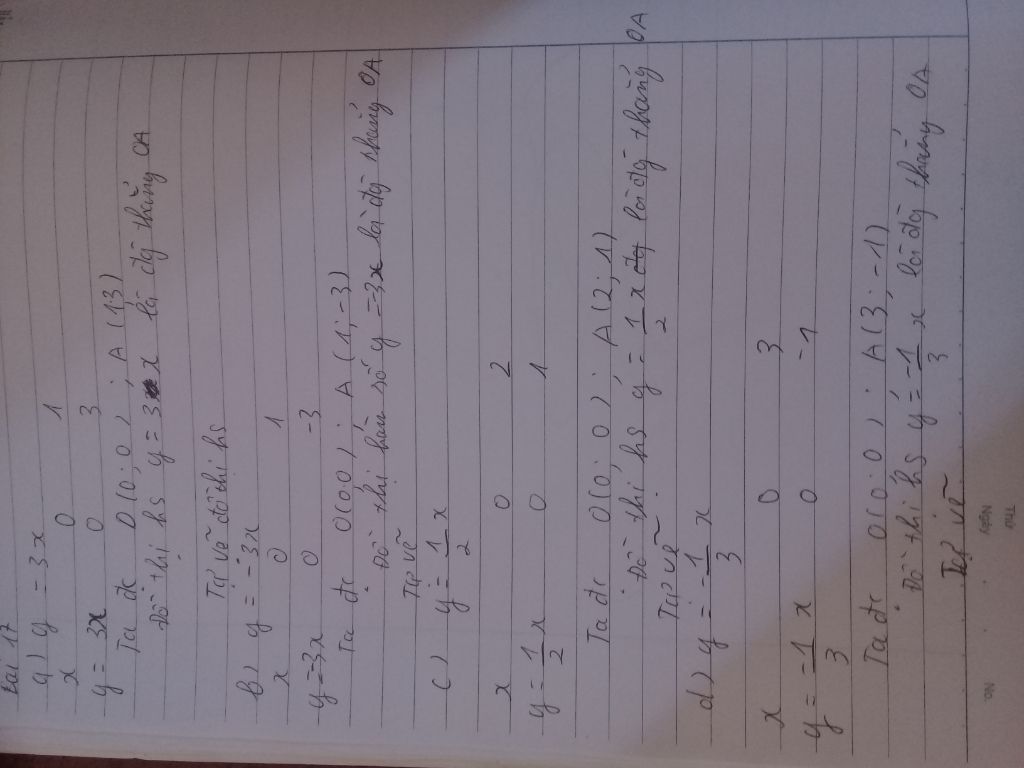 Bài 17
a) y = 3x
x 0 1
y = 3x 0 3
Ta đc O(0;0); A(1 3)
Đồ thị hs y = 3x là đg thẳng OA
Tự vẽ đồ thị hs
b) y = -3x
x 0 1
y = -3x 0 -3
Ta đc O(0;0); A(1; -3)
Đồ thị hàm số y = -3x là đg thẳng OA
Tự vẽ
c) y = 1/2 x
x 0 2
y = 1/2 x 0 1
Ta đc O(0;0); A(2; 1)
Đồ thị hs y = 1/2 x là đg thẳng OA
Tự vẽ
d) y = -1/3 x
x 0 3
y = -1/3 x 0 -1
Ta đc O(0;0); A(3; -1)
Đồ thị hs y = -1/3 x là đg thẳng OA
Tự vẽ
Thứ
Ngày
No.